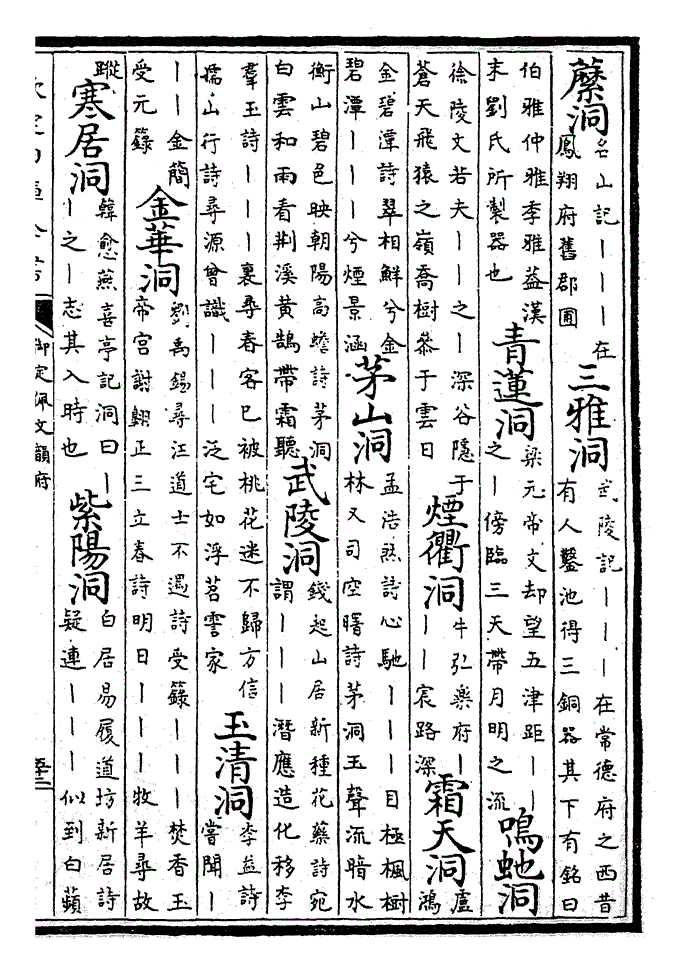 洞
名山記———在
鳳翔府舊郡圃
三雅洞
武陵記———在常德府之西昔
有人鑿池得三銅器其下有銘曰
伯雅仲雅季雅葢漢
末劉氏所製器也
青蓮洞
梁元帝文却望五津距——
之—傍臨三天帶月明之流
鳴虵洞
徐陵文若夫——之—深谷隱于
蒼天飛猿之嶺喬樹叅于雲日
煙衢洞
牛弘樂府—
——宸路深
霜天洞
盧
鴻
金碧潭詩翠相鮮兮金
碧潭———兮煙景涵
茅山洞
孟浩然詩心馳———目極楓樹
林又司空曙詩茅洞玉聲流暗水
衡山碧色映朝陽高蟾詩茅洞
白雲和雨看荆溪黄鵠帶霜聽
武陵洞
錢起山居新種花藥詩宛
謂———潛應造化移李
羣玉詩———裏尋春客已被桃花迷不歸方信
孺山行詩尋源曾識———泛宅如浮苕霅家
玉清洞
李益詩
嘗聞—
——金簡
受元籙
金華洞
劉禹錫尋汪道士不遇詩受籙———焚香玉
帝宫謝翺正三立春詩明日———牧羊尋故
蹤
寒居洞
韓愈燕喜亭記洞曰—
—之—志其入時也
紫陽洞
白居易履道坊新居詩
疑連———似到白蘋
欽定四庫全書
御定佩文韻府